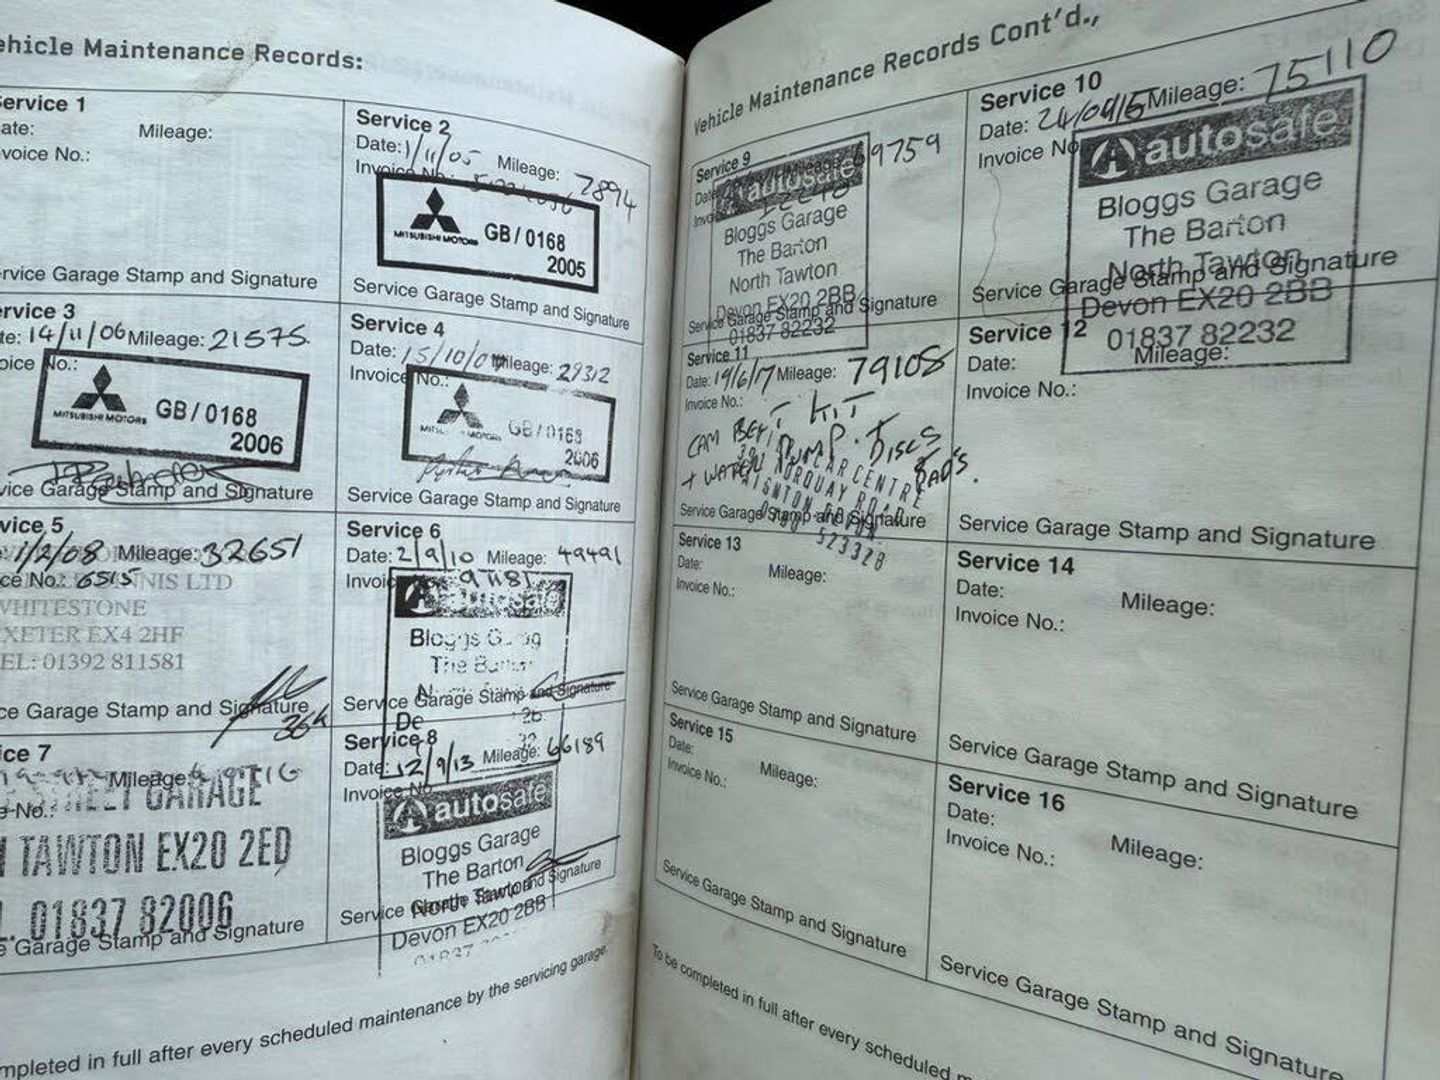 ehicle Maintenance Records:
ervice 1
ate: Mileage:
voice No.:
rvice Garage Stamp and Signature
Service 2
Date: 1/11/05 Mileage: 7894
Invoice No.:
MITSUBISHI MOTORS GB/0168
2005
Service Garage Stamp and Signature
rvice 3
te: 14/11/06 Mileage: 21575.
oice No.:
MITSUBISHI MOTORS GB/0168
2006
vice Garage Stamp and Signature
Service 4
Date: 15/10/0 Mileage: 29312
Invoice No.:
GB/0168
2006
Service Garage Stamp and Signature
vice 5
: 1/2/08 Mileage: 32651
ce No.: 6515
NNIS LTD
WHITESTONE
XETER EX4 2HF
EL: 01392 811581
ce Garage Stamp and Signature
36k
Service 6
Date: 2/9/10 Mileage: 49491
Invoic
autosafe
Bloggs G
The Barton
Service Garage Stamp and Signature
De
ice 7
Mileage:
e No.:
STREET GARAGE
TAWTON EX20 2ED
L. 01837 82006
e Garage Stamp and Signature
Service 8
Date: 12/9/13 Mileage: 66189
Invoice No
autosafe
Bloggs Garage
The Barton
North Tawton
Service Garage Stamp and Signature
Devon EX20 2BB
01837
ompleted in full after every scheduled maintenance by the servicing garage.
Vehicle Maintenance Records Cont'd.,
Service 9
Mileage: 69759
autosafe
Bloggs Garage
The Barton
North Tawton
Devon EX20 2BB
Service Garage Stamp and Signature
01837 82232
Service 10
Date: 24/04/15 Mileage: 75110
Invoice No
autosafe
Bloggs Garage
The Barton
North Tawton
Service Garage Stamp and Signature
Devon EX20 2BB
01837 82232
Service 11
Date: 19/6/17 Mileage: 79108
Invoice No.:
CAM BELT KIT
+ WATER PUMP. + DISCS
PADS.
CAR CENTRE
TORQUAY ROAD
523328
Service Garage Stamp and Signature
Service 12
Date: Mileage:
Invoice No.:
Service Garage Stamp and Signature
Service 13
Date: Mileage:
Invoice No.:
Service Garage Stamp and Signature
Service 14
Date: Mileage:
Invoice No.:
Service Garage Stamp and Signature
Service 15
Date: Mileage:
Invoice No.:
Service Garage Stamp and Signature
Service 16
Date: Mileage:
Invoice No.:
Service Garage Stamp and Signature
To be completed in full after every scheduled